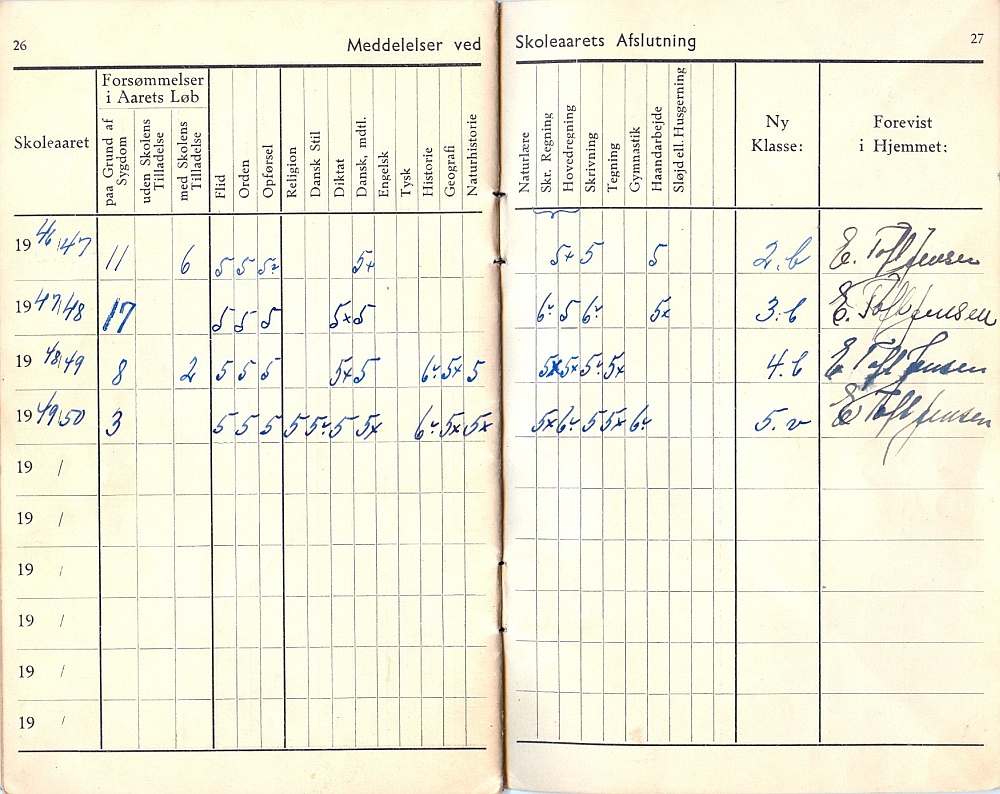 26 Meddelelser ved
Skoleaarets Afslutning 27
Skoleaaret
Forsømmelser
i Aarets Løb
paa Grund af
Sygdom
uden Skolens
Tilladelse
med Skolens
Tilladelse
Flid
Orden
Opførsel
Religion
Dansk Stil
Diktat
Dansk, mdtl.
Engelsk
Tysk
Historie
Geografi
Naturhistorie
Naturlære
Skr. Regning
Hovedregning
Skrivning
Tegning
Gymnastik
Haandarbejde
Sløjd ell. Husgerning
Ny
Klasse:
Forevist
i Hjemmet:
19 46/47 11 6 5 5 5÷ 5x 5x 5 5 2.b E. Toft Jensen
19 47/48 17 5 5 5 5x 5 6÷ 5 6÷ 5x 3.b E. Toft Jensen
19 48/49 8 2 5 5 5 5x 5 6÷ 5x 5 5x 5x 5÷ 5x 4.b E Toft Jensen
19 49/50 3 5 5 5 5 5÷ 5 5x 6÷ 5x 5x 5x 6÷ 5 5x 6÷ 5.v E Toft Jensen
19 /
19 /
19 /
19 /
19 /
19 /